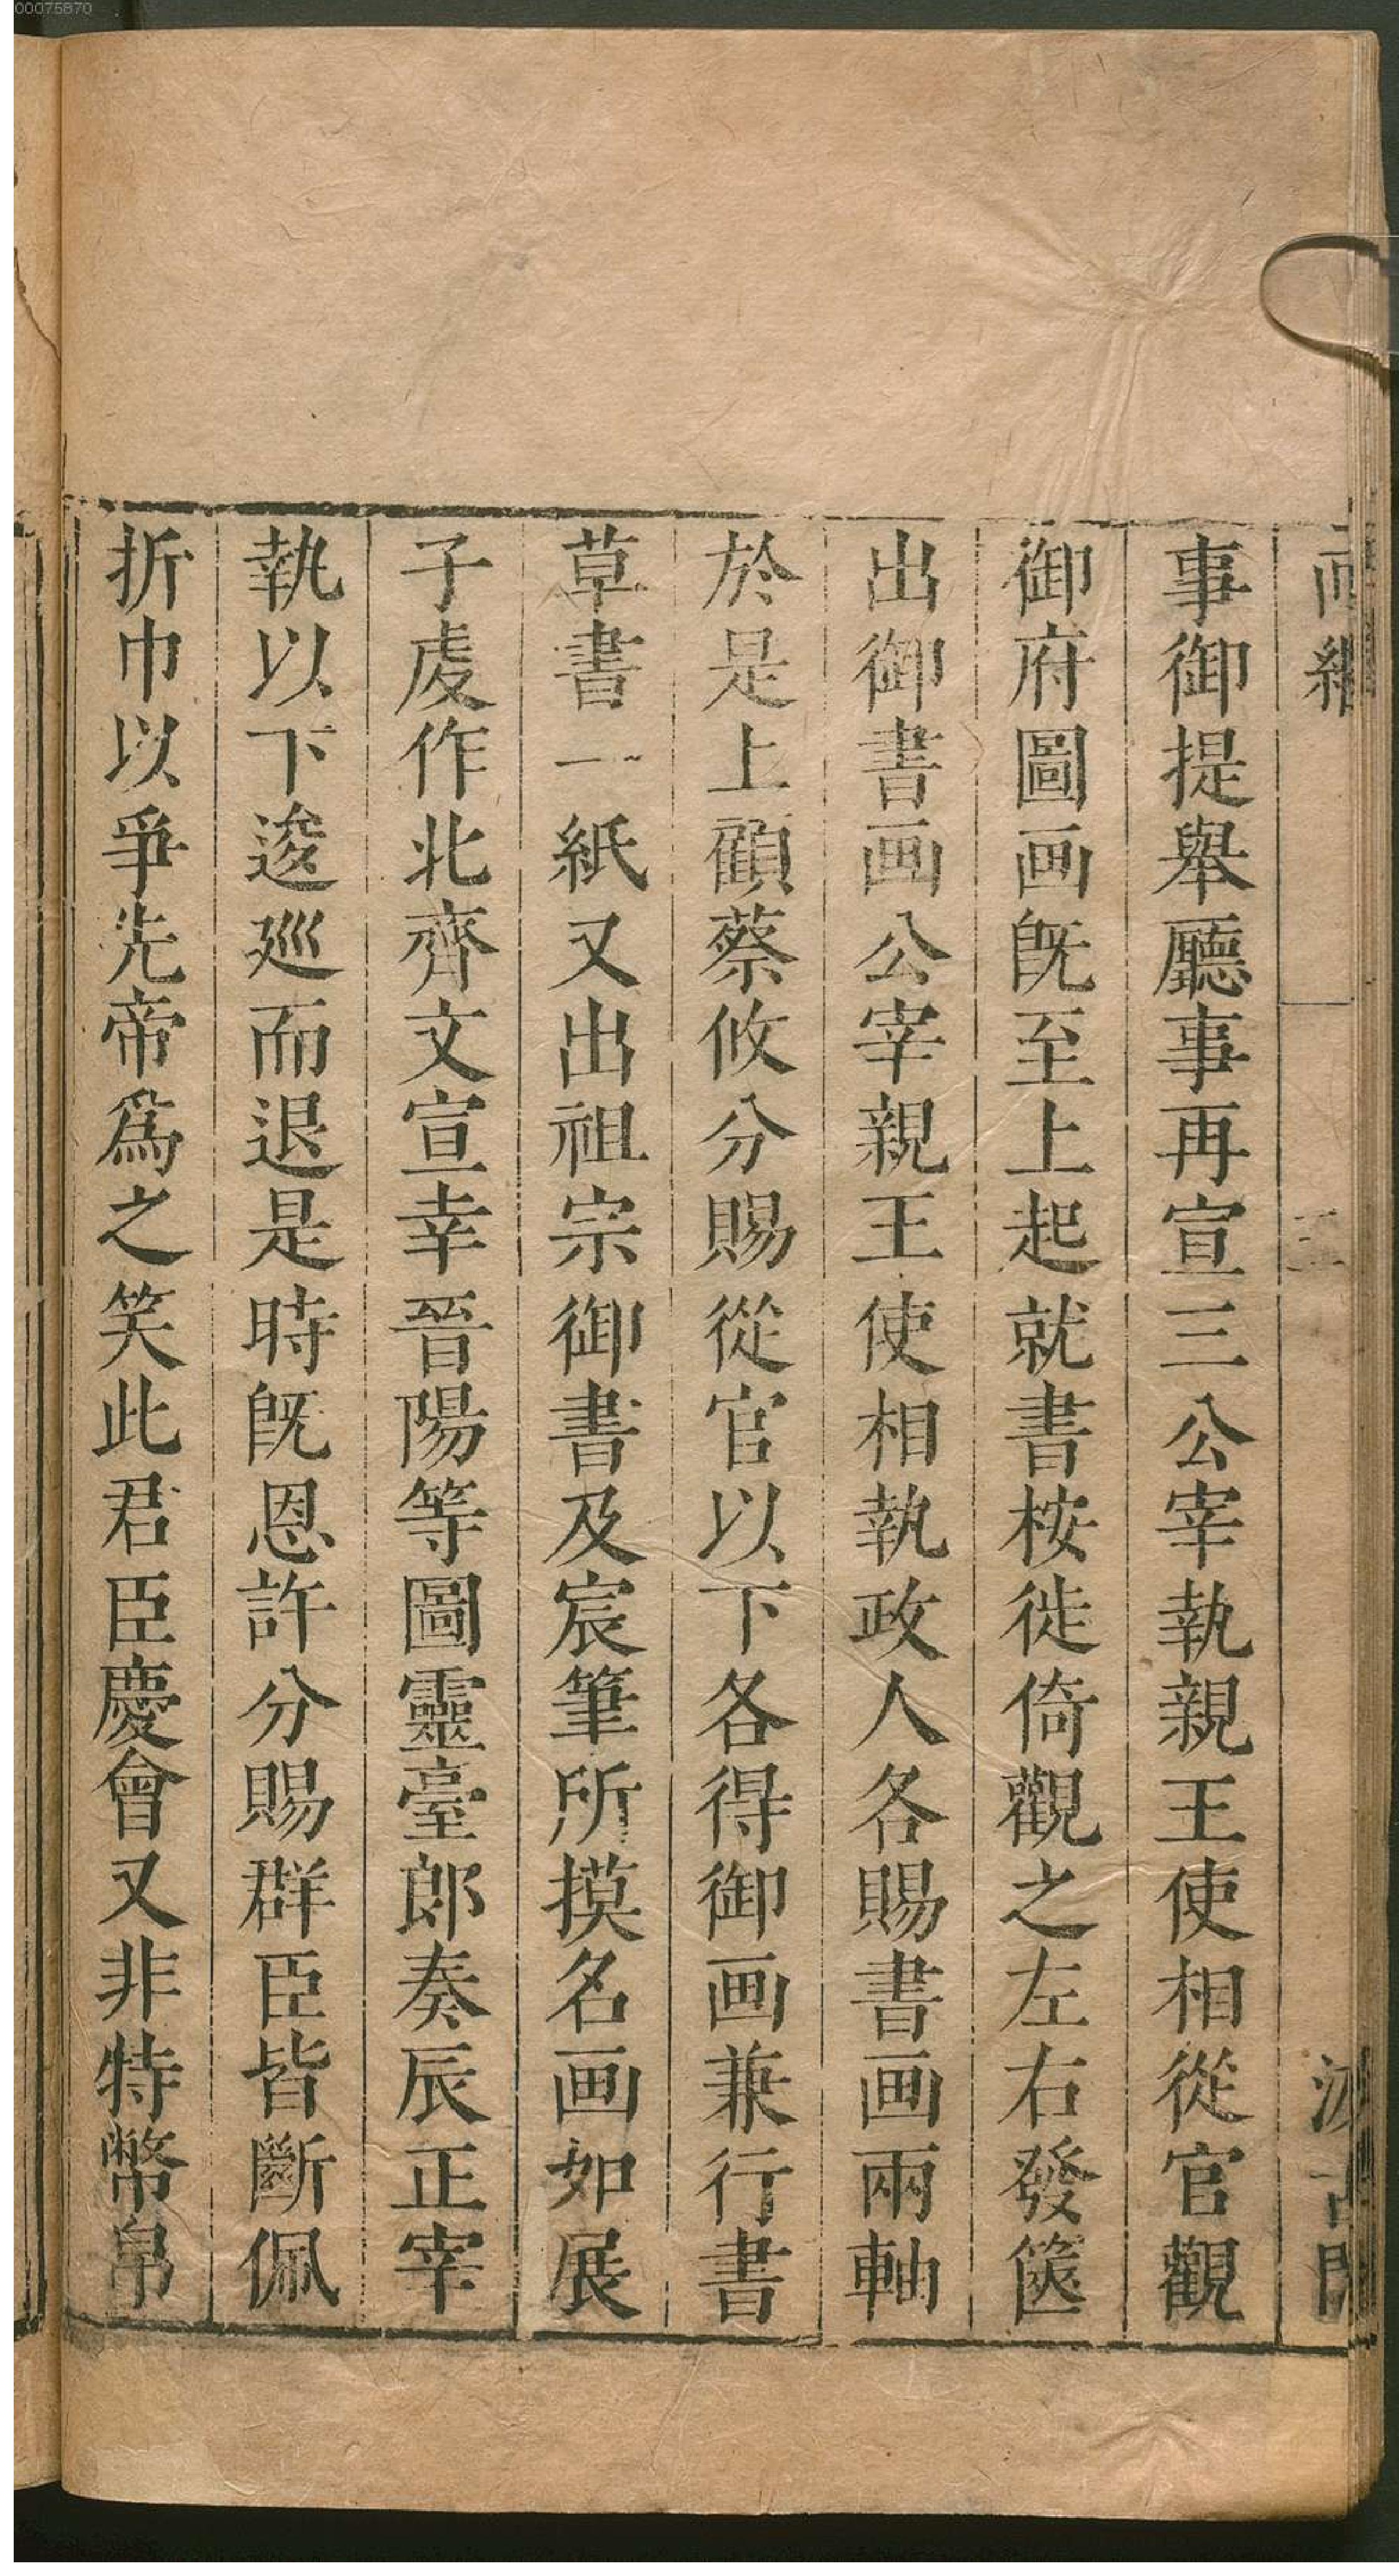 00075870
事御提舉廳事再宣三公宰執親王使相從官觀
御府圖画旣至上起就書桉徙倚觀之左右發篋
出御書画公宰親王使相執政人各賜書画兩軸
於是上顧蔡攸分賜從官以下各得御画兼行書
草書一紙又出祖宗御書及宸筆所摸名画如展
子虔作北齊文宣幸晉陽等圖靈臺郎奏辰正宰
執以下逡廵而退是時旣恩許分賜群臣皆斷佩
折巾以爭先帝爲之笑此君臣慶會又非特幣帛